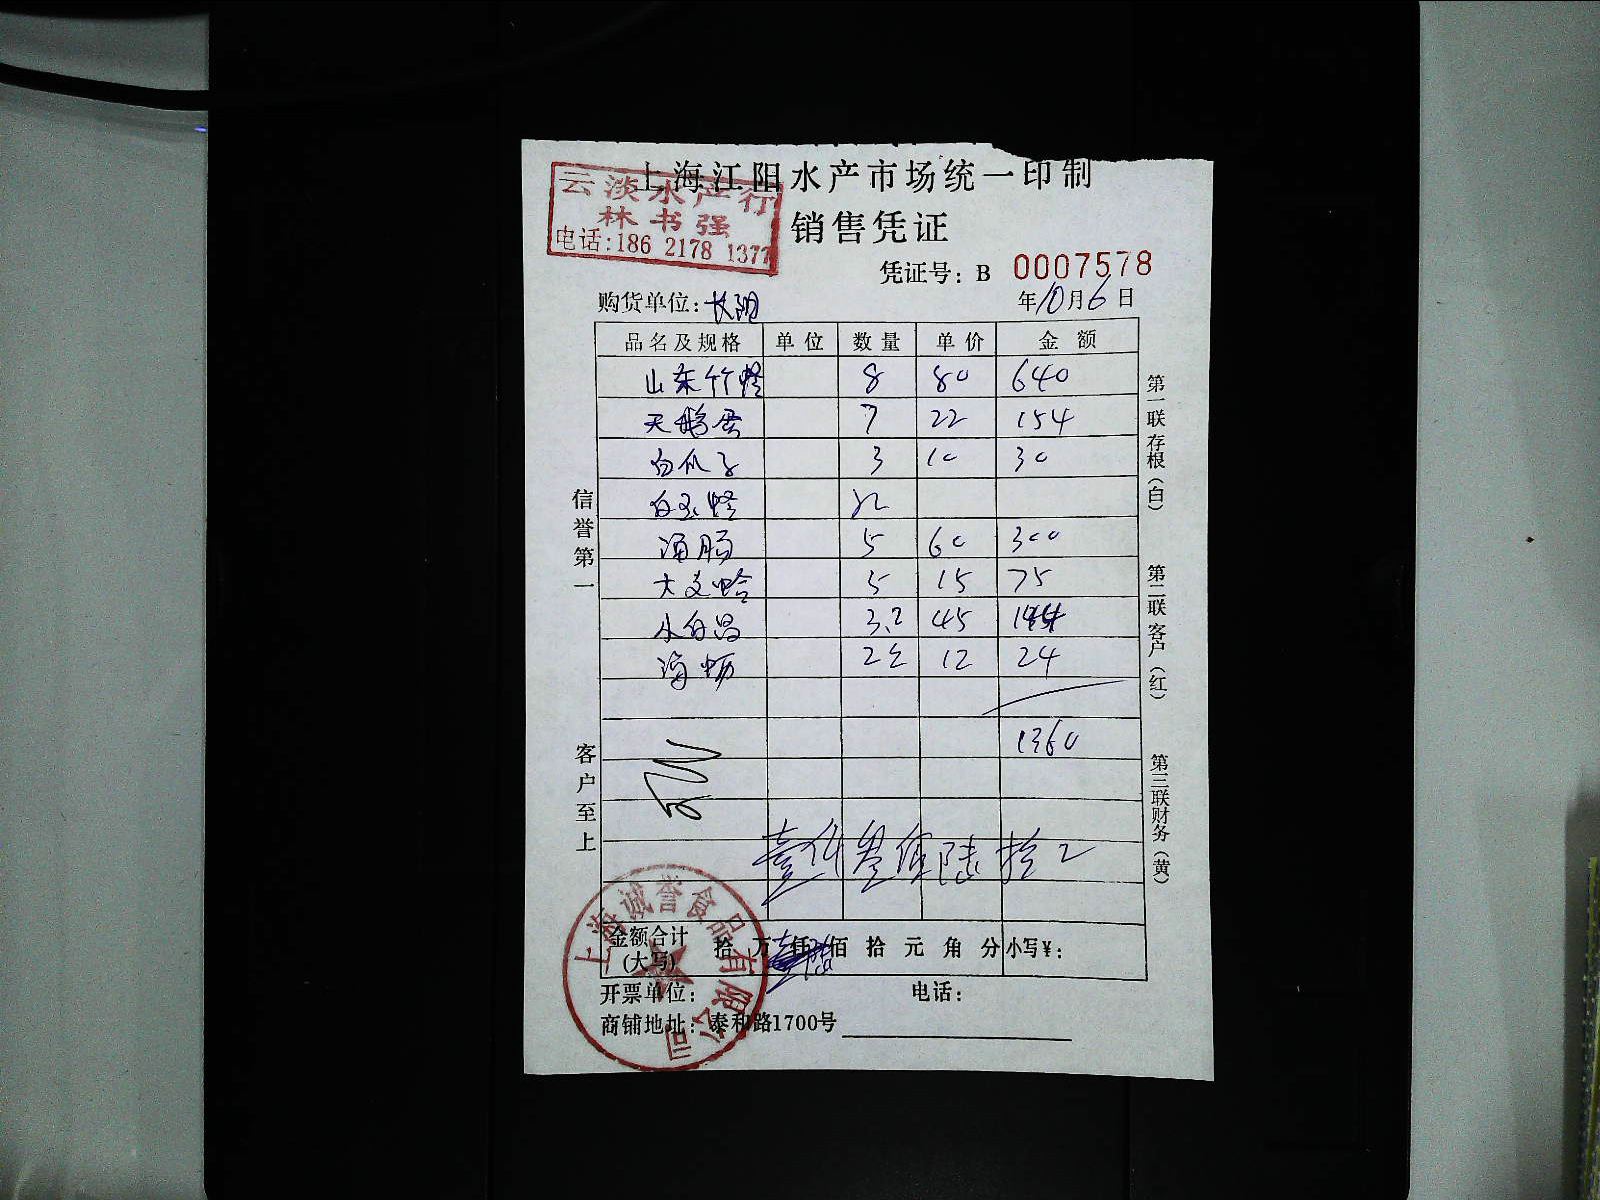 上海江阳水产市场统一印制
云淡水产行
林书强
电话:186 2178 1377
销售凭证
凭证号: B 0007578
购货单位: 长阳
年10月6日
品名及规格 单位 数量 单价 金额
山东竹蛏 8 80 640
天鹅蛋 7 22 154
白瓜子 3 10 30
白玉蛏
海肠 5 60 300
大文蛤 5 15 75
小白昌 3.2 45 144
海蛎 2 12 24
1360
壹仟叁佰陆拾
金额合计 拾 万 仟 佰 拾 元 角 分 小写¥:
(大写)
开票单位: 电话:
商铺地址: 泰和路1700号
信誉第一
客户至上
第一联存根(白)
第二联客户(红)
第三联财务(黄)
上海诚誉食品有限公司